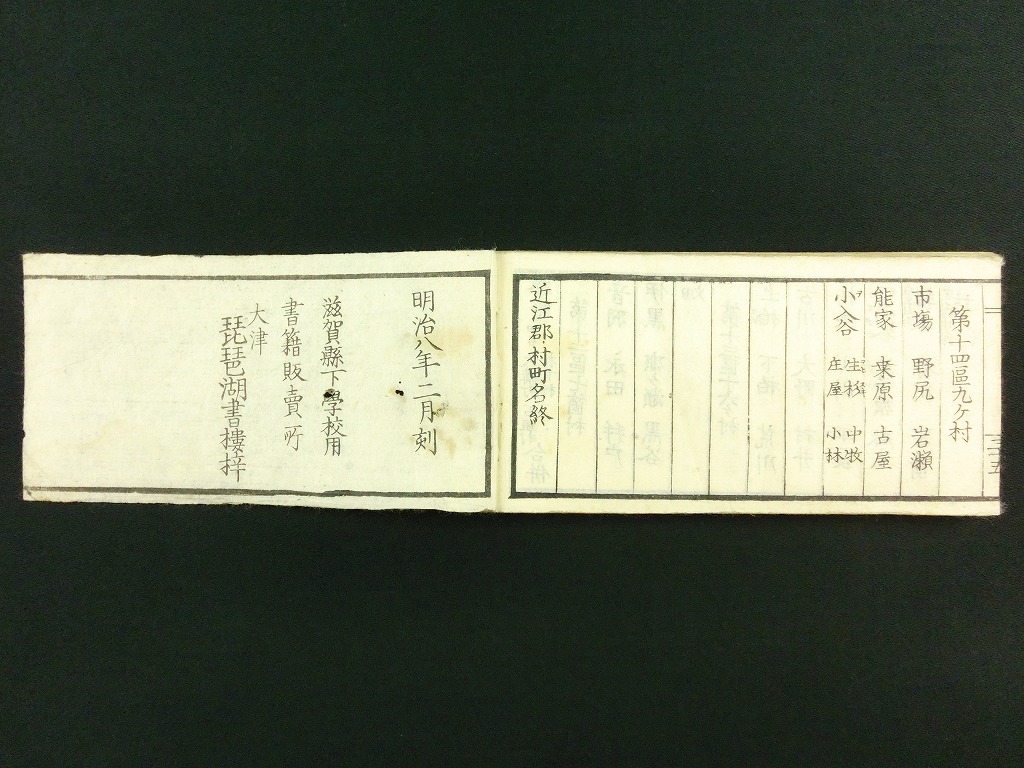 第十四區九ケ村
市塲 野尻 岩瀬
能家 桒原 古屋
小入谷 生杉 中牧
庄屋 小林
近江郡村町名終
明治八年二月刻
滋賀縣下學校用
書籍販賣所
大津
琵琶湖書樓梓